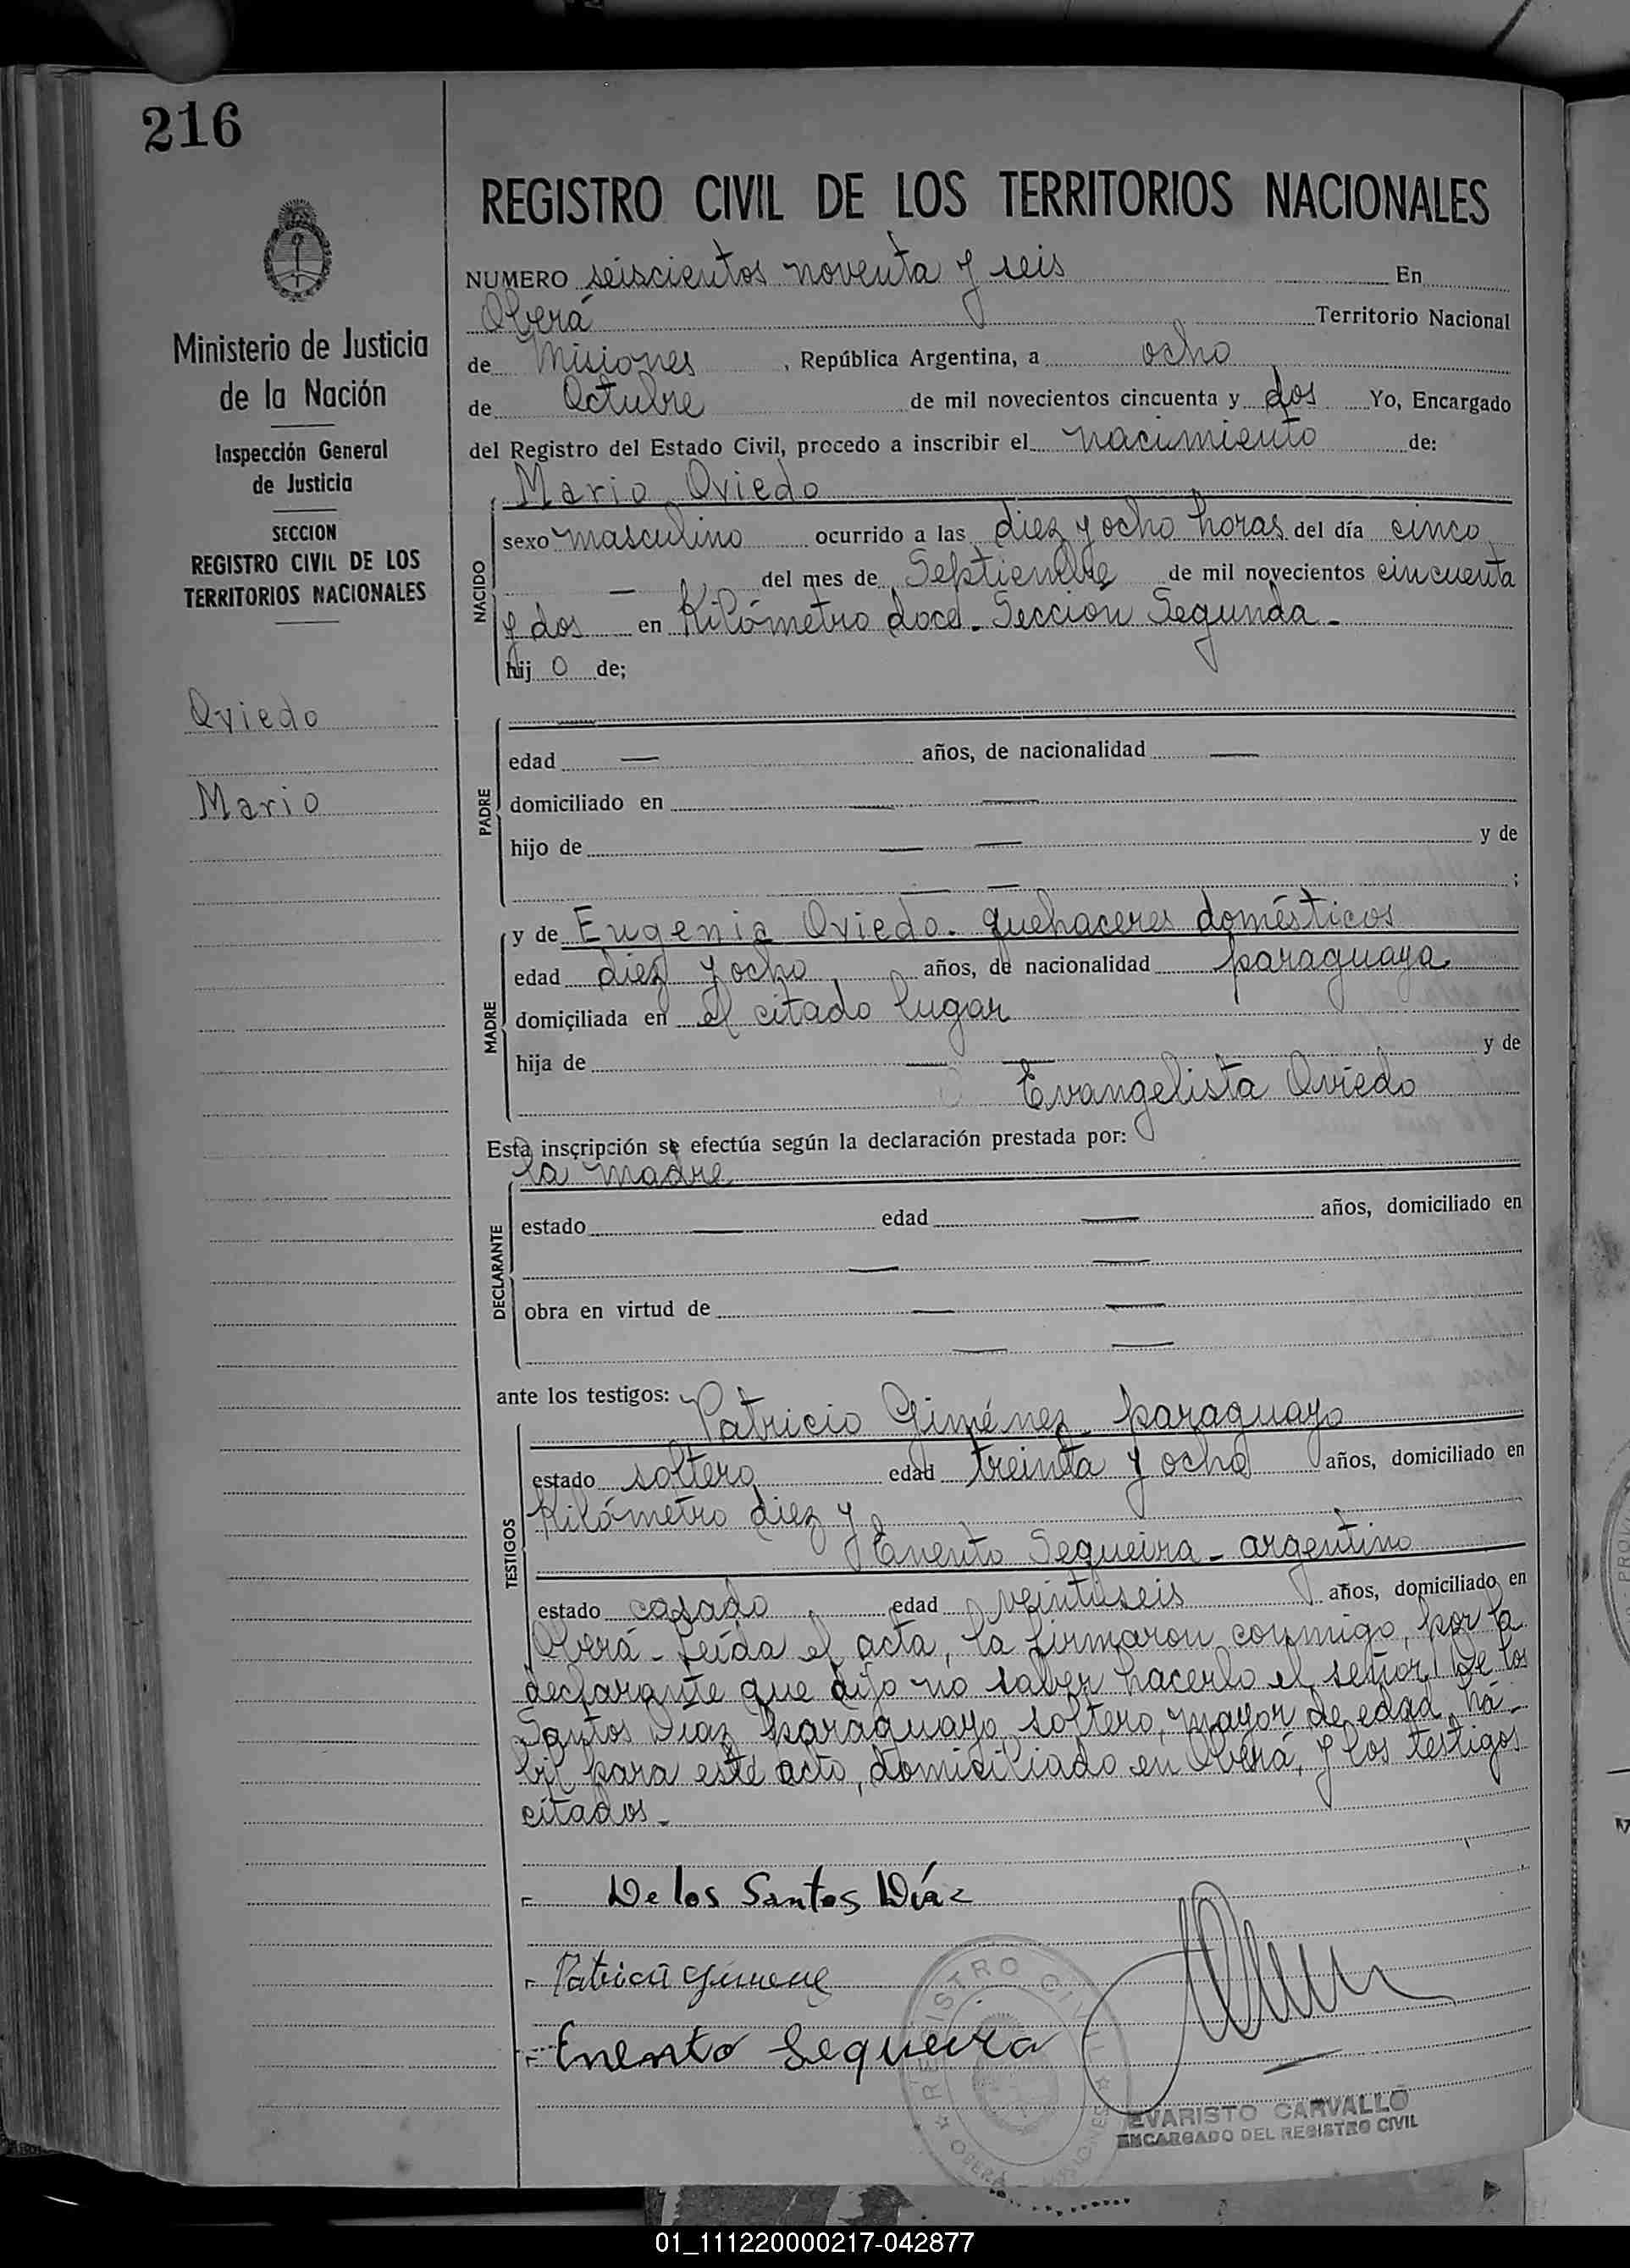 216
REGISTRO CIVIL DE LOS TERRITORIOS NACIONALES
Ministerio de Justicia
de la Nación
Inspección General
de Justicia
SECCION
REGISTRO CIVIL DE LOS
TERRITORIOS NACIONALES
Oviedo
Mario
NUMERO seiscientos noventa y seis En
Oberá Territorio Nacional
de Misiones, República Argentina, a ocho
de Octubre de mil novecientos cincuenta y dos Yo, Encargado
del Registro del Estado Civil, procedo a inscribir el nacimiento de:
Mario Oviedo
NACIDO
sexo masculino ocurrido a las diez y ocho horas del día cinco
— del mes de Septiembre de mil novecientos cincuenta
y dos en Kilómetro doce - Sección Segunda -
hij o de;
PADRE
—
edad — años, de nacionalidad —
domiciliado en — —
hijo de — — y de
— — ;
MADRE
y de Eugenia Oviedo - quehaceres domésticos
edad diez y ocho años, de nacionalidad paraguaya
domiciliada en el citado lugar
hija de — — y de
Evangelista Oviedo
Esta inscripción se efectúa según la declaración prestada por:
la madre
DECLARANTE
estado — edad — años, domiciliado en
— —
obra en virtud de — —
— —
ante los testigos:
TESTIGOS
Patricio Giménez - paraguayo
estado soltero edad treinta y ocho años, domiciliado en
Kilómetro diez y
Enento Sequeira - argentino
estado casado edad veintiseis años, domiciliado en
Oberá - Leída el acta, la firmaron conmigo, por la
declarante que dijo no saber hacerlo el señor De los
Santos Díaz paraguayo, soltero, mayor de edad, há-
bil para este acto, domiciliado en Oberá, y los testigos
citados -
De los Santos Díaz
Patricio Gimenez
Enento Sequeira
REGISTRO CIVIL
OBERA MISIONES
EVARISTO CARVALLO
ENCARGADO DEL REGISTRO CIVIL
01_111220000217-042877